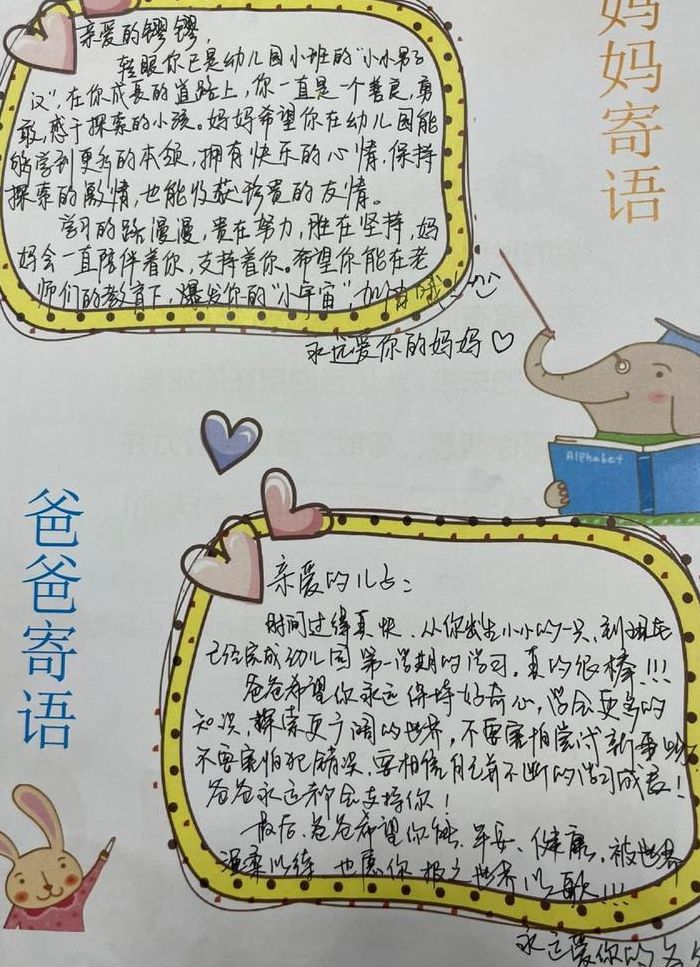 妈妈寄语
亲爱的镠镠，
转眼你已是幼儿园小班的“小小男子
汉”，在你成长的道路上，你一直是一个善良，勇
敢，感于探索的小孩。妈妈希望你在幼儿园能
够学到更多的本领，拥有快乐的心情，保持
探索的激情，也能收获珍贵的友情。
学习的路漫漫，贵在努力，胜在坚持，妈
妈会一直陪伴着你，支持着你。希望你能在老
师们的教育下，爆发你的“小宇宙”，加油哦！
永远爱你的妈妈♡
Alphabet
爸爸寄语
亲爱的儿占：
时间过得真快，从你出生小小的一只，到现在
已经完成幼儿园第一学期的学习，真的很棒！！！
爸爸希望你永远保持好奇心，学会更多的
知识，探索更广阔的世界，不要害怕尝试新事物
不要害怕犯错误，要相信自己并不断的学习成长！
爸爸永远都会支持你！
最后，爸爸希望你能平安、健康，被世界
温柔以待，也愿你报之世界以歌！！！
永远爱你的爸